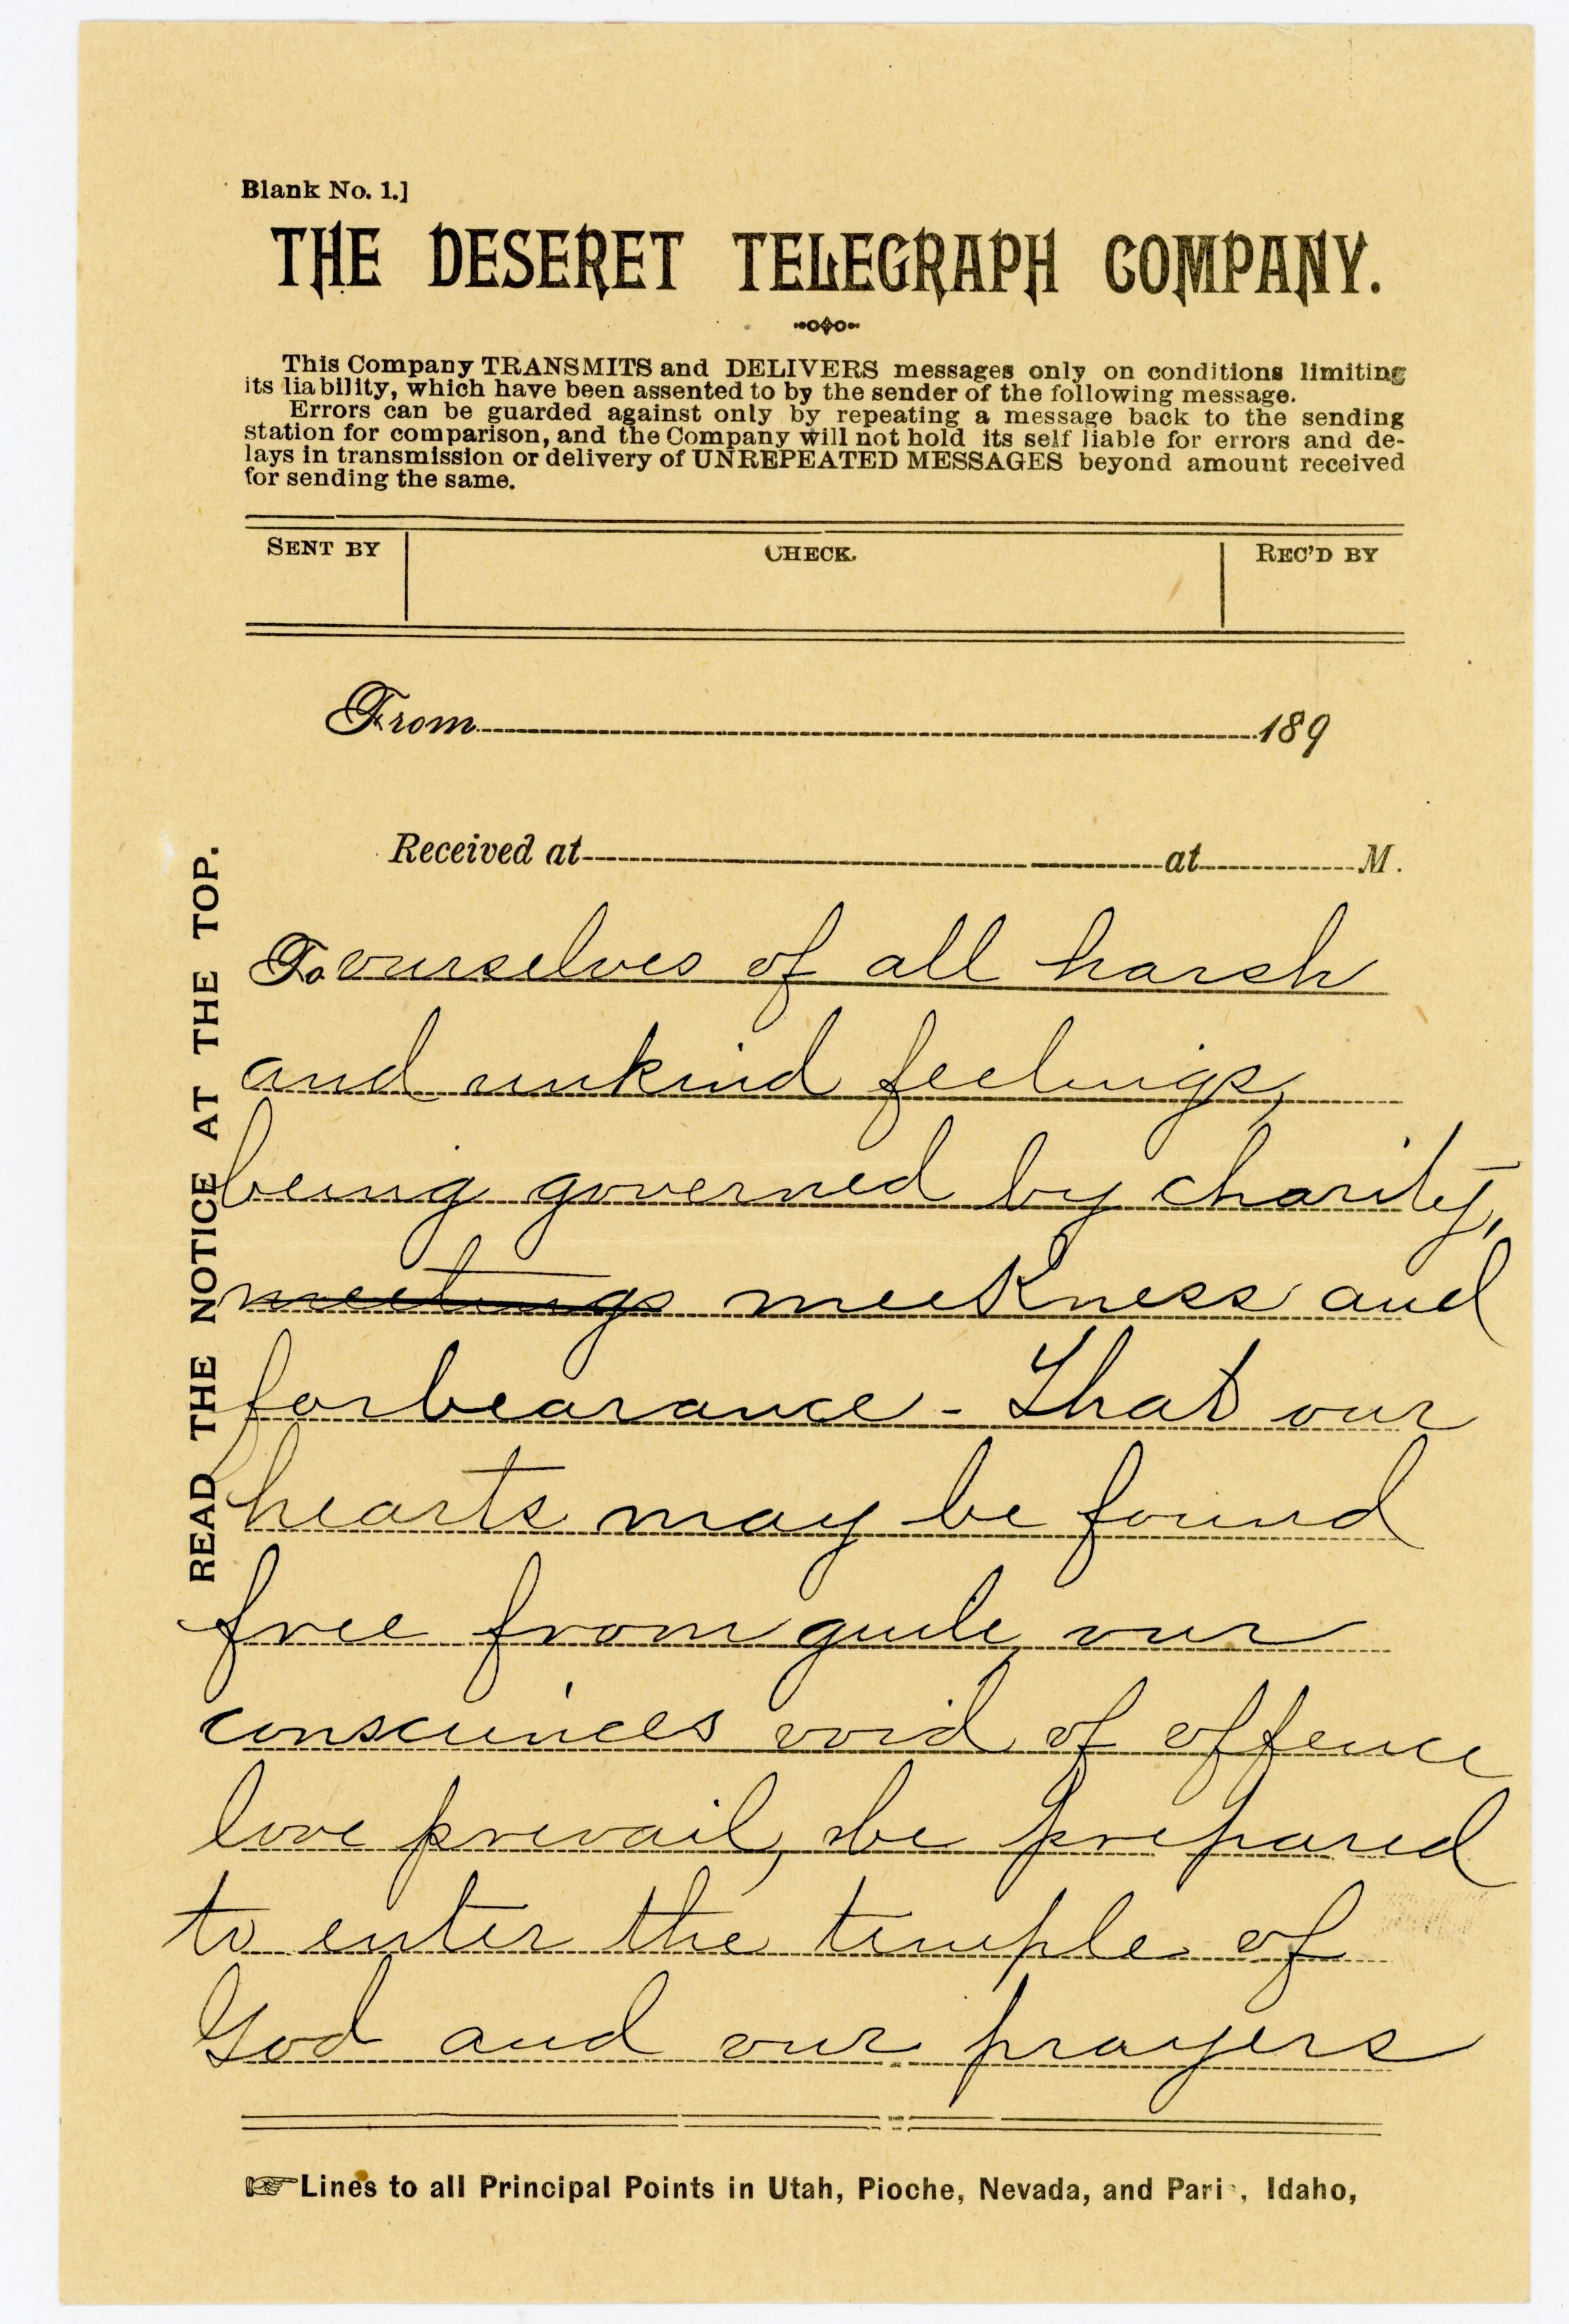 Blank No. 1.]
THE DESERET TELEGRAPH COMPANY.
This Company TRANSMITS and DELIVERS messages only on conditions limiting
its liability, which have been assented to by the sender of the following message.
Errors can be guarded against only by repeating a message back to the sending
station for comparison, and the Company will not hold its self liable for errors and de-
lays in transmission or delivery of UNREPEATED MESSAGES beyond amount received
for sending the same.
SENT BY CHECK. REC'D BY
From 189
Received at at M.
READ THE NOTICE AT THE TOP.
To ourselves of all harsh
and unkind feelings,
being governed by charity,
meetings meekness and
forbearance - That our
hearts may be found
free from guile, our
consciences void of offence
love prevail, be prepared
to enter the temple of
God and our prayers
☞Lines to all Principal Points in Utah, Pioche, Nevada, and Pari , Idaho,